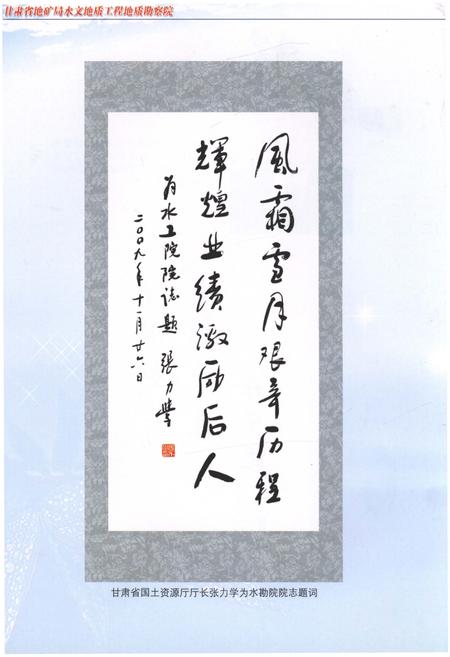 甘肃省地矿局水文地质工程地质勘察院
風霜雪月艰辛历程
輝煌业績激励后人
为水工院院志题 張力學
二〇〇九年十一月廿六日
甘肃省国土资源厅厅长张力学为水勘院院志题词